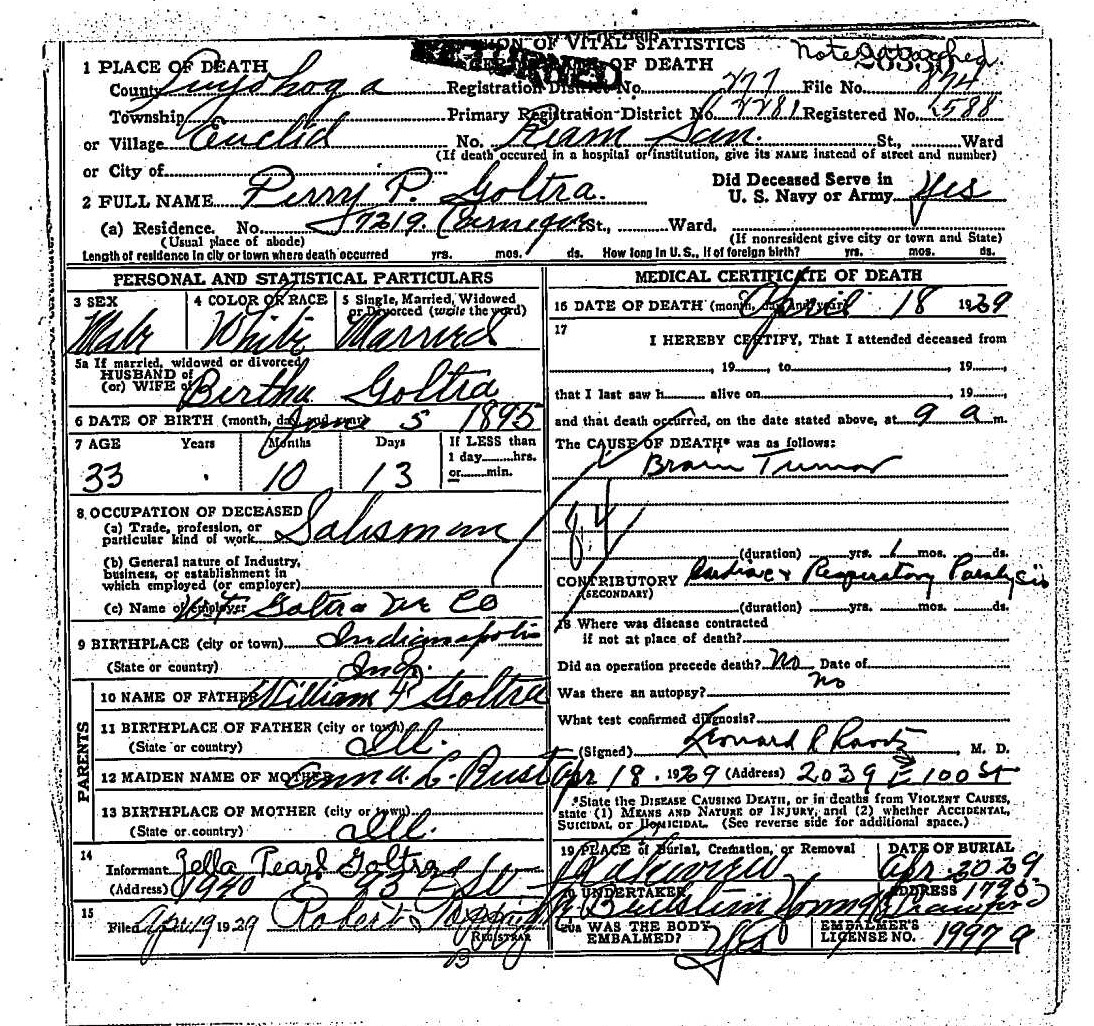 ION OF VITAL STATISTICS
Note attached
CERTIFICATE OF DEATH
1 PLACE OF DEATH
County Cuyahoga Registration District No. 277 File No. 874
Township Primary Registration District No. 2281 Registered No. 1588
or Village Euclid No. St., Ward
(If death occured in a hospital or institution, give its NAME instead of street and number)
or City of
2 FULL NAME Perry P. Goltra.
Did Deceased Serve in U. S. Navy or Army Yes
(a) Residence. No. 7219. Carnegie St., Ward.
(Usual place of abode) (If nonresident give city or town and State)
Length of residence in city or town where death occurred yrs. mos. ds. How long in U.S., if of foreign birth? yrs. mos. ds.
PERSONAL AND STATISTICAL PARTICULARS
3 SEX 4 COLOR OR RACE 5 Single, Married, Widowed or Divorced (write the word)
Male White Married
5a If married, widowed or divorced
HUSBAND of
(or) WIFE of Bertha Goltra
6 DATE OF BIRTH (month, day, and year) June 5 1895
7 AGE Years Months Days If LESS than 1 day hrs. or min.
33 10 13
8 OCCUPATION OF DECEASED
(a) Trade, profession, or particular kind of work Salesman
(b) General nature of Industry, business, or establishment in which employed (or employer)
(c) Name of employer W.F. Goltra Tie Co
9 BIRTHPLACE (city or town) Indianapolis
(State or country) Ind.
PARENTS
10 NAME OF FATHER William F Goltra
11 BIRTHPLACE OF FATHER (city or town)
(State or country) Ill.
12 MAIDEN NAME OF MOTHER Emma L. Rust
13 BIRTHPLACE OF MOTHER (city or town)
(State or country) Ill.
14
Informant Zella Pearl Goltra
(Address) 1940 E 93 St
15
Filed Apr 19 1929 Robert
REGISTRAR
MEDICAL CERTIFICATE OF DEATH
16 DATE OF DEATH (month, day, and year) April 18 1929
17
I HEREBY CERTIFY, That I attended deceased from
, 19 , to , 19 ,
that I last saw h alive on , 19 ,
and that death occurred, on the date stated above, at 9 a m.
The CAUSE OF DEATH* was as follows:
Brain Tumor
84
(duration) yrs. 1 mos. ds.
CONTRIBUTORY Cardiac & Respiratory Paralysis
(SECONDARY)
(duration) yrs. mos. ds.
18 Where was disease contracted
if not at place of death?
Did an operation precede death? No Date of
Was there an autopsy? No
What test confirmed diagnosis?
(Signed) Leonard P , M. D.
Apr 18. 1929 (Address) 2039 E 100 St
*State the DISEASE CAUSING DEATH, or in deaths from VIOLENT CAUSES,
state (1) MEANS AND NATURE OF INJURY, and (2) whether ACCIDENTAL,
SUICIDAL or HOMICIDAL. (See reverse side for additional space.)
19 PLACE of Burial, Cremation, or Removal DATE OF BURIAL
Lakeview Apr 20 29
20 UNDERTAKER ADDRESS
Young
20a WAS THE BODY EMBALMED? Yes
EMBALMER'S LICENSE NO. 1997 a